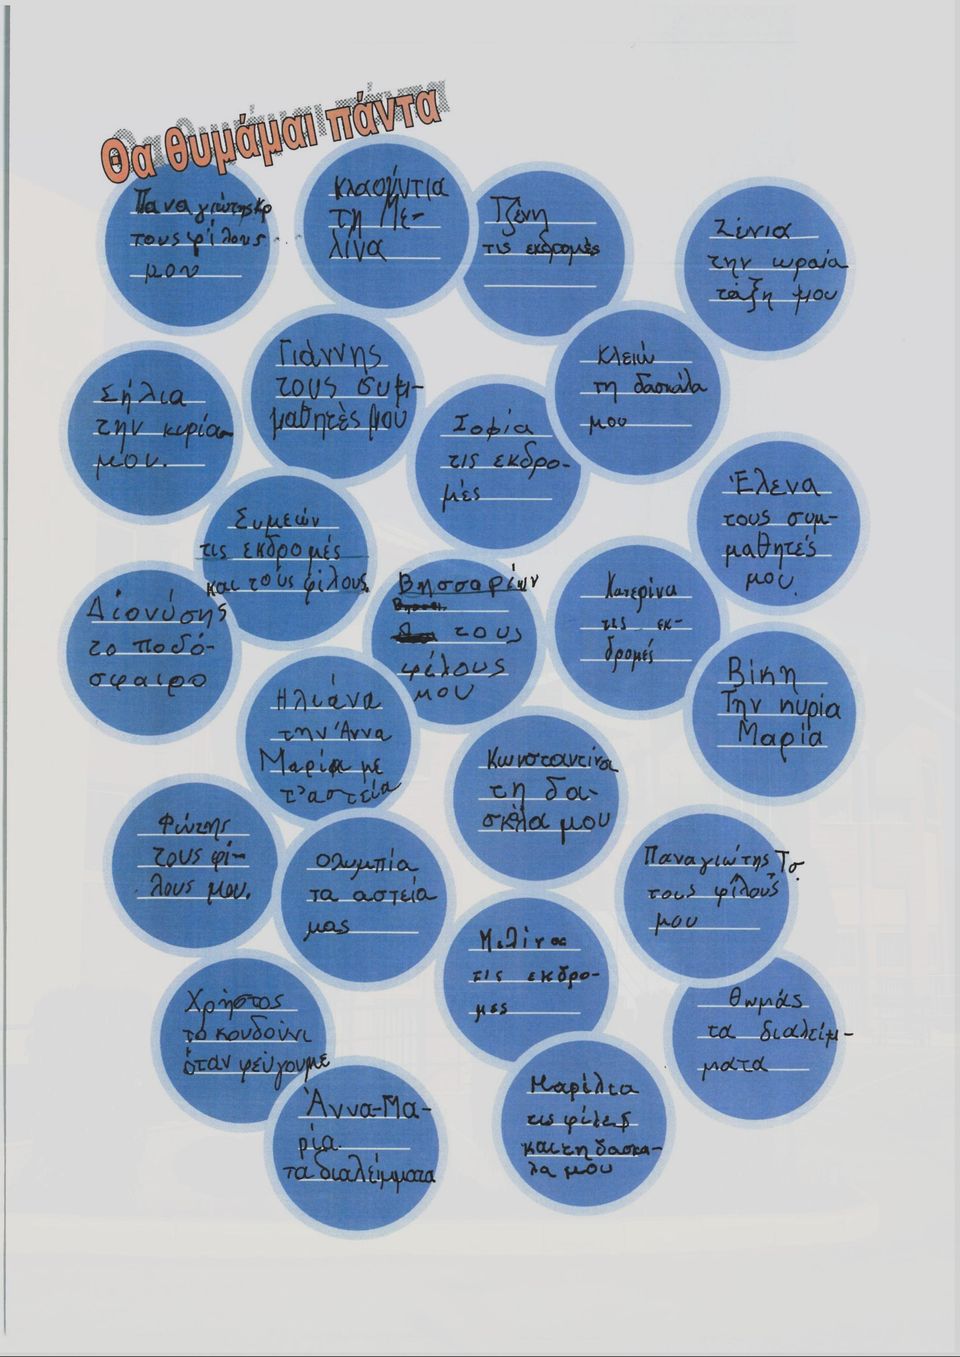 Θα θυμάμαι πάντα
Παναγιώτης Κρ
τους φίλους
μου
Κλαούντια
τη Με-
λίνα
Τζένη
τις εκδρομές
Ξένια
την ωραία
τάξη μου
Σήλια
την κυρία
μου.
Γιάννης
τους συμ-
μαθητές μου
Σοφία
τις εκδρο-
μές
Κλειώ
τη δασκάλα
μου
Συμεών
τις εκδρομές
και τους φίλους.
Έλενα
τους συμ-
μαθητές
μου.
Διονύσης
το ποδό-
σφαιρο
Βησσαρίων
τους
φίλους
μου
Κατερίνα
τις εκ-
δρομές
Βίκη
Την κυρία
Μαρία
Ηλιάνα
την Άννα
Μαρία με
τ'αστεία
Κωνσταντίνα
τη δα-
σκάλα μου
Φώτης
τους φί-
λους μου.
Ολυμπία
τα αστεία
μας
Παναγιώτης Τσ.
τους φίλους
μου
Μελίνα
τις εκδρο-
μες
Χρήστος
το κουδούνι
όταν φεύγουμε
Θωμάς
τα διαλείμ-
ματα
Άννα-Μα-
ρία
τα διαλείμματα
Μαρίλια
τις φίλες
και τη δασκα-
λα μου